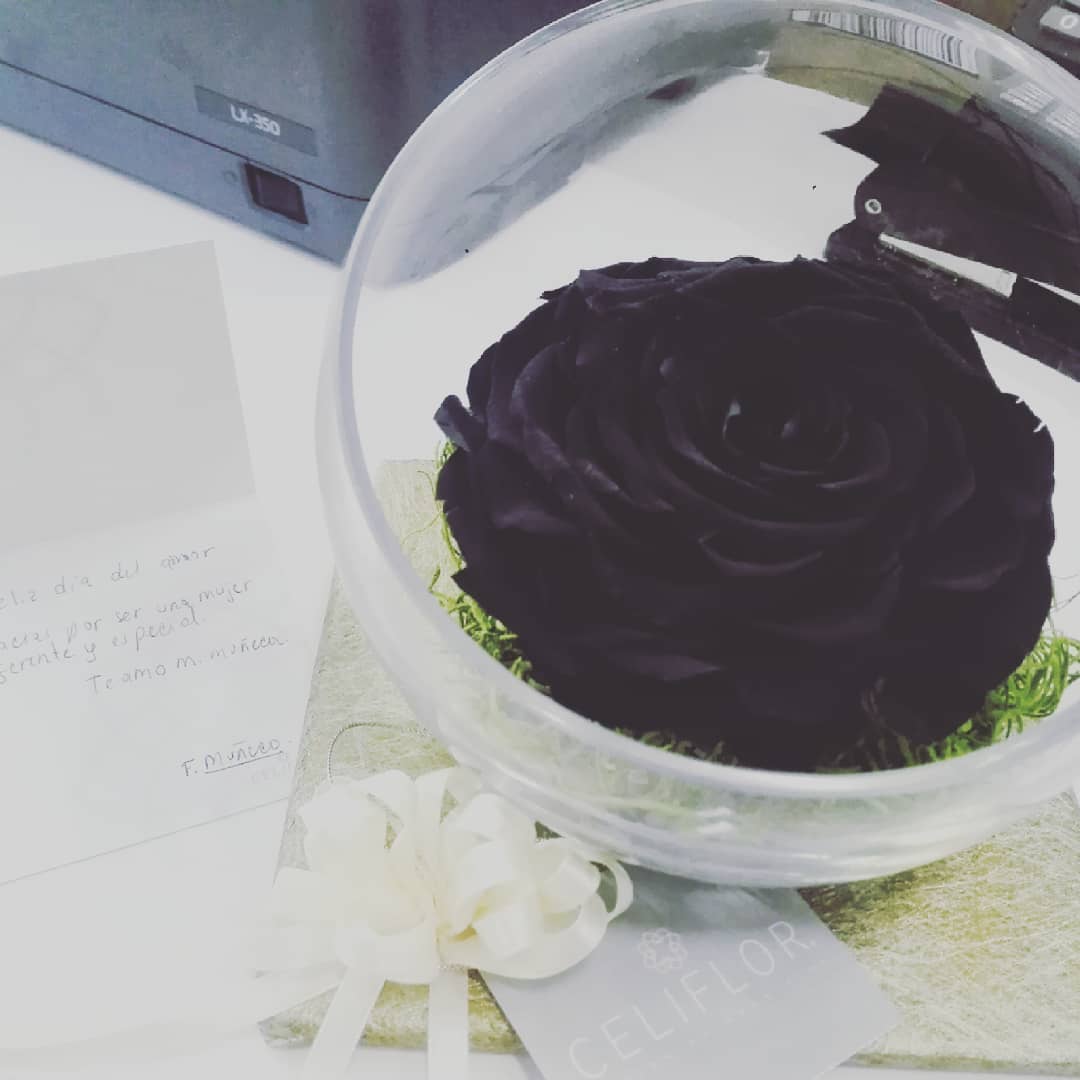 LX-350
eliz día del amor
acias por ser una mujer
gerente y especial.
Te amo m. muñeca.
F. MUÑECO.
CELIFLOR.